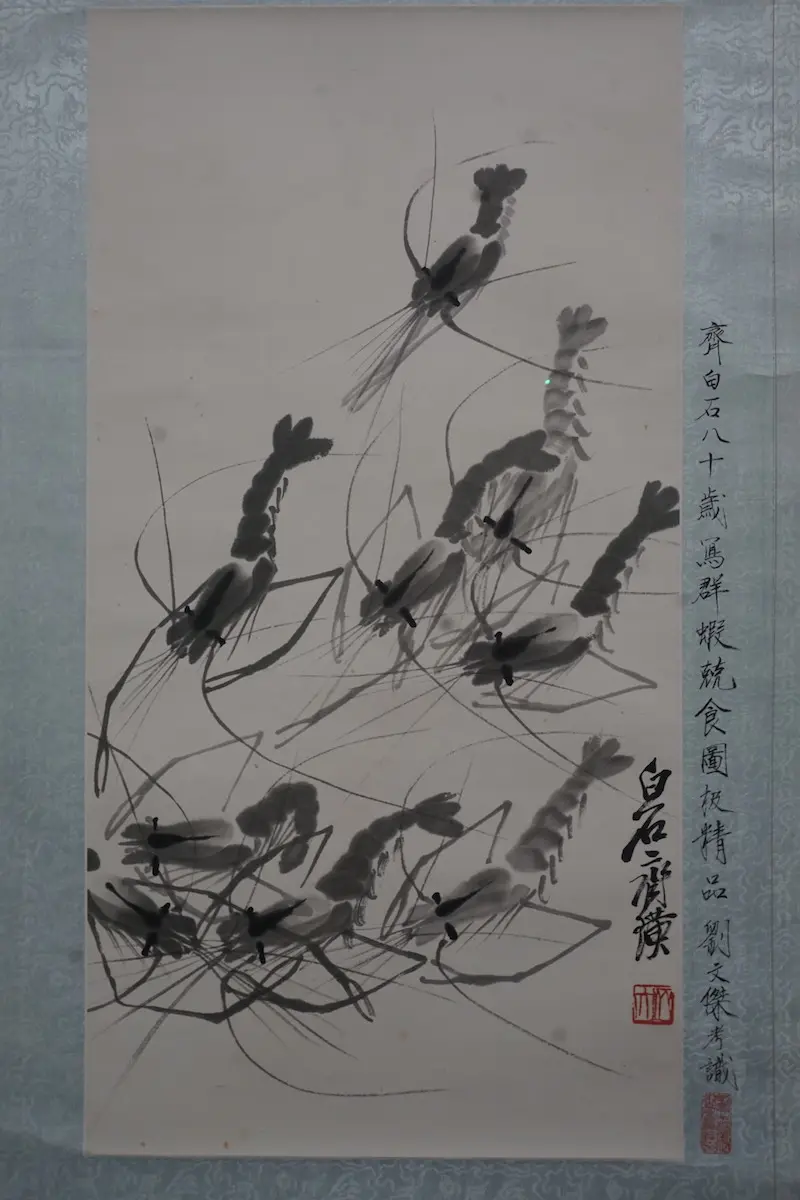 齊白石八十歲寫群蝦兢食圖极精品劉文傑考識
白石齊璜